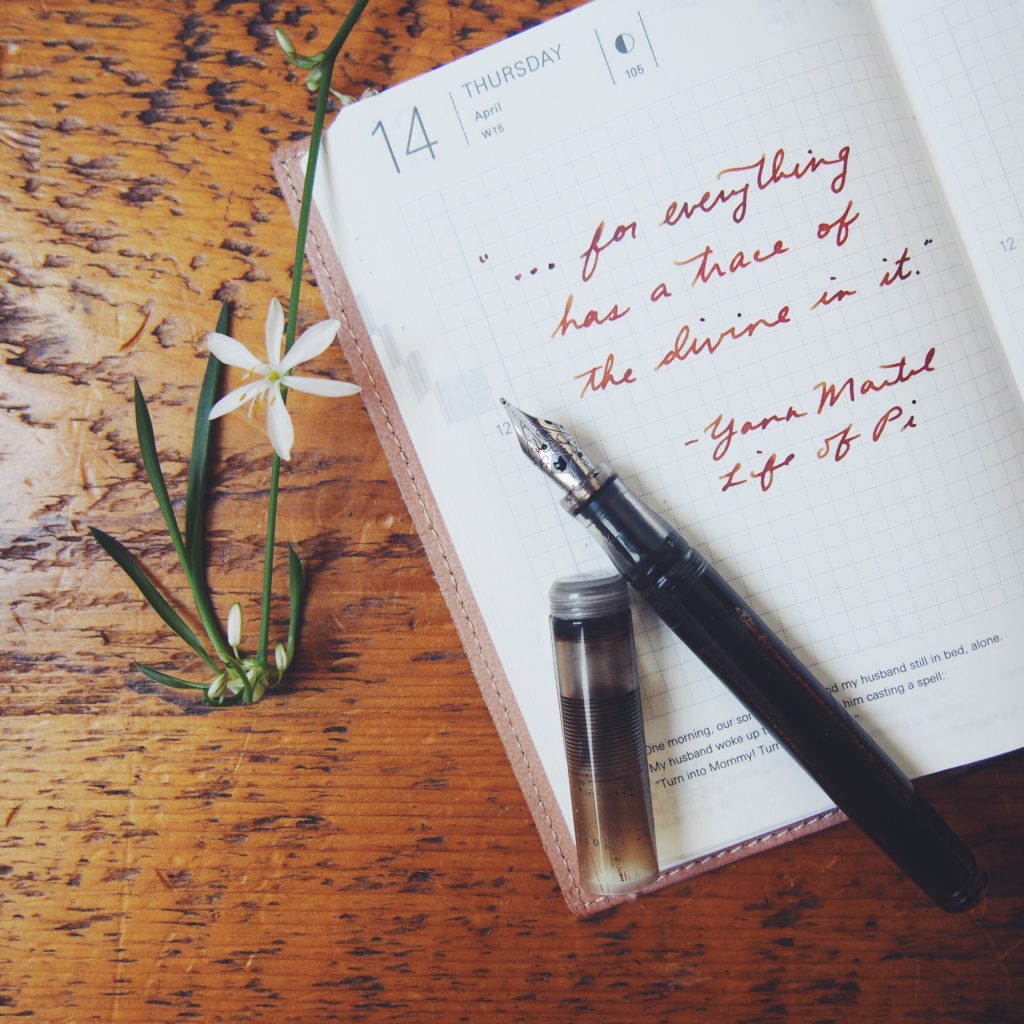 14
THURSDAY
April
W15
105
"... for everything
has a trace of
the divine in it."
-Yann Martel
Life of Pi
12
12
One morning, our son nd my husband still in bed, alone.
My husband woke up t him casting a spell:
"Turn into Mommy! Turn "